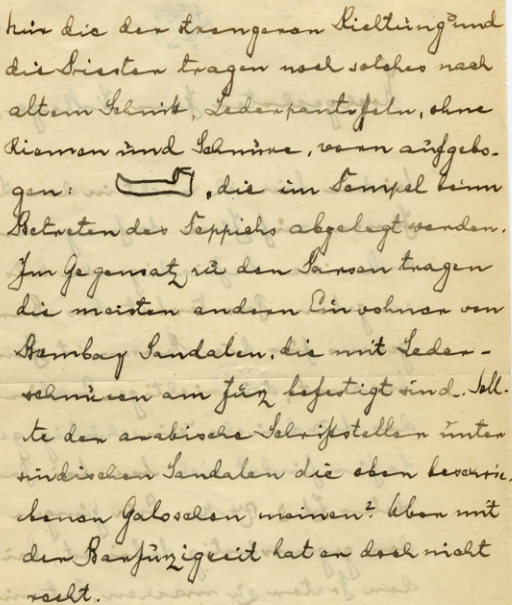 nur die der strengeren Richtung und
die Priester tragen noch solches nach
altem Schnitt, Lederpantoffeln, ohne
Riemen und Schnüre, vorn aufgebo-
gen: , die im Tempel beim
Betreten des Teppichs abgelegt werden.
Im Gegensatz zu den Parsen tragen
die meisten andern Einwohner von
Bombay Sandalen, die mit Leder-
schnüren am Fuß befestigt sind. Soll-
te der arabische Schriftsteller unter
sindischen Sandalen die eben beschrie-
benen Galoschen meinen? Aber mit
der Barfüßigkeit hat er doch nicht
recht.